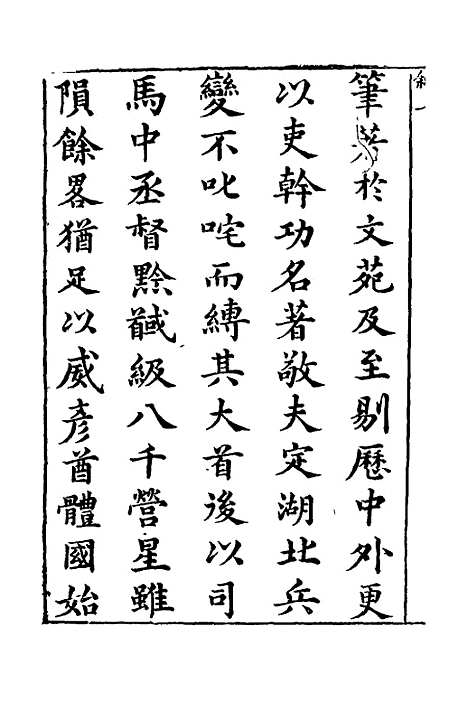 筆著於文苑及至剔歷中外更
以吏幹功名著敬夫定湖北兵
變不叱咤而縛其大首後以司
馬中丞督黔馘級八千營星雖
隕餘畧猶足以威彥酋體國始